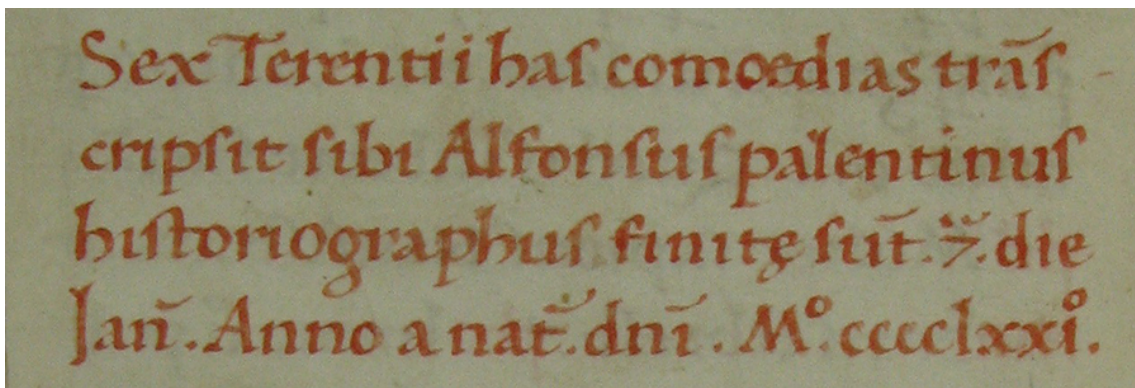 Sex Terentii has comoedias trās
cripsit sibi Alfonsus palentinus
historiographus finitę sūt .7ᵃ. die
Jan̄. Anno a nat̄. dn̄i. Mº. cccclxxiº.